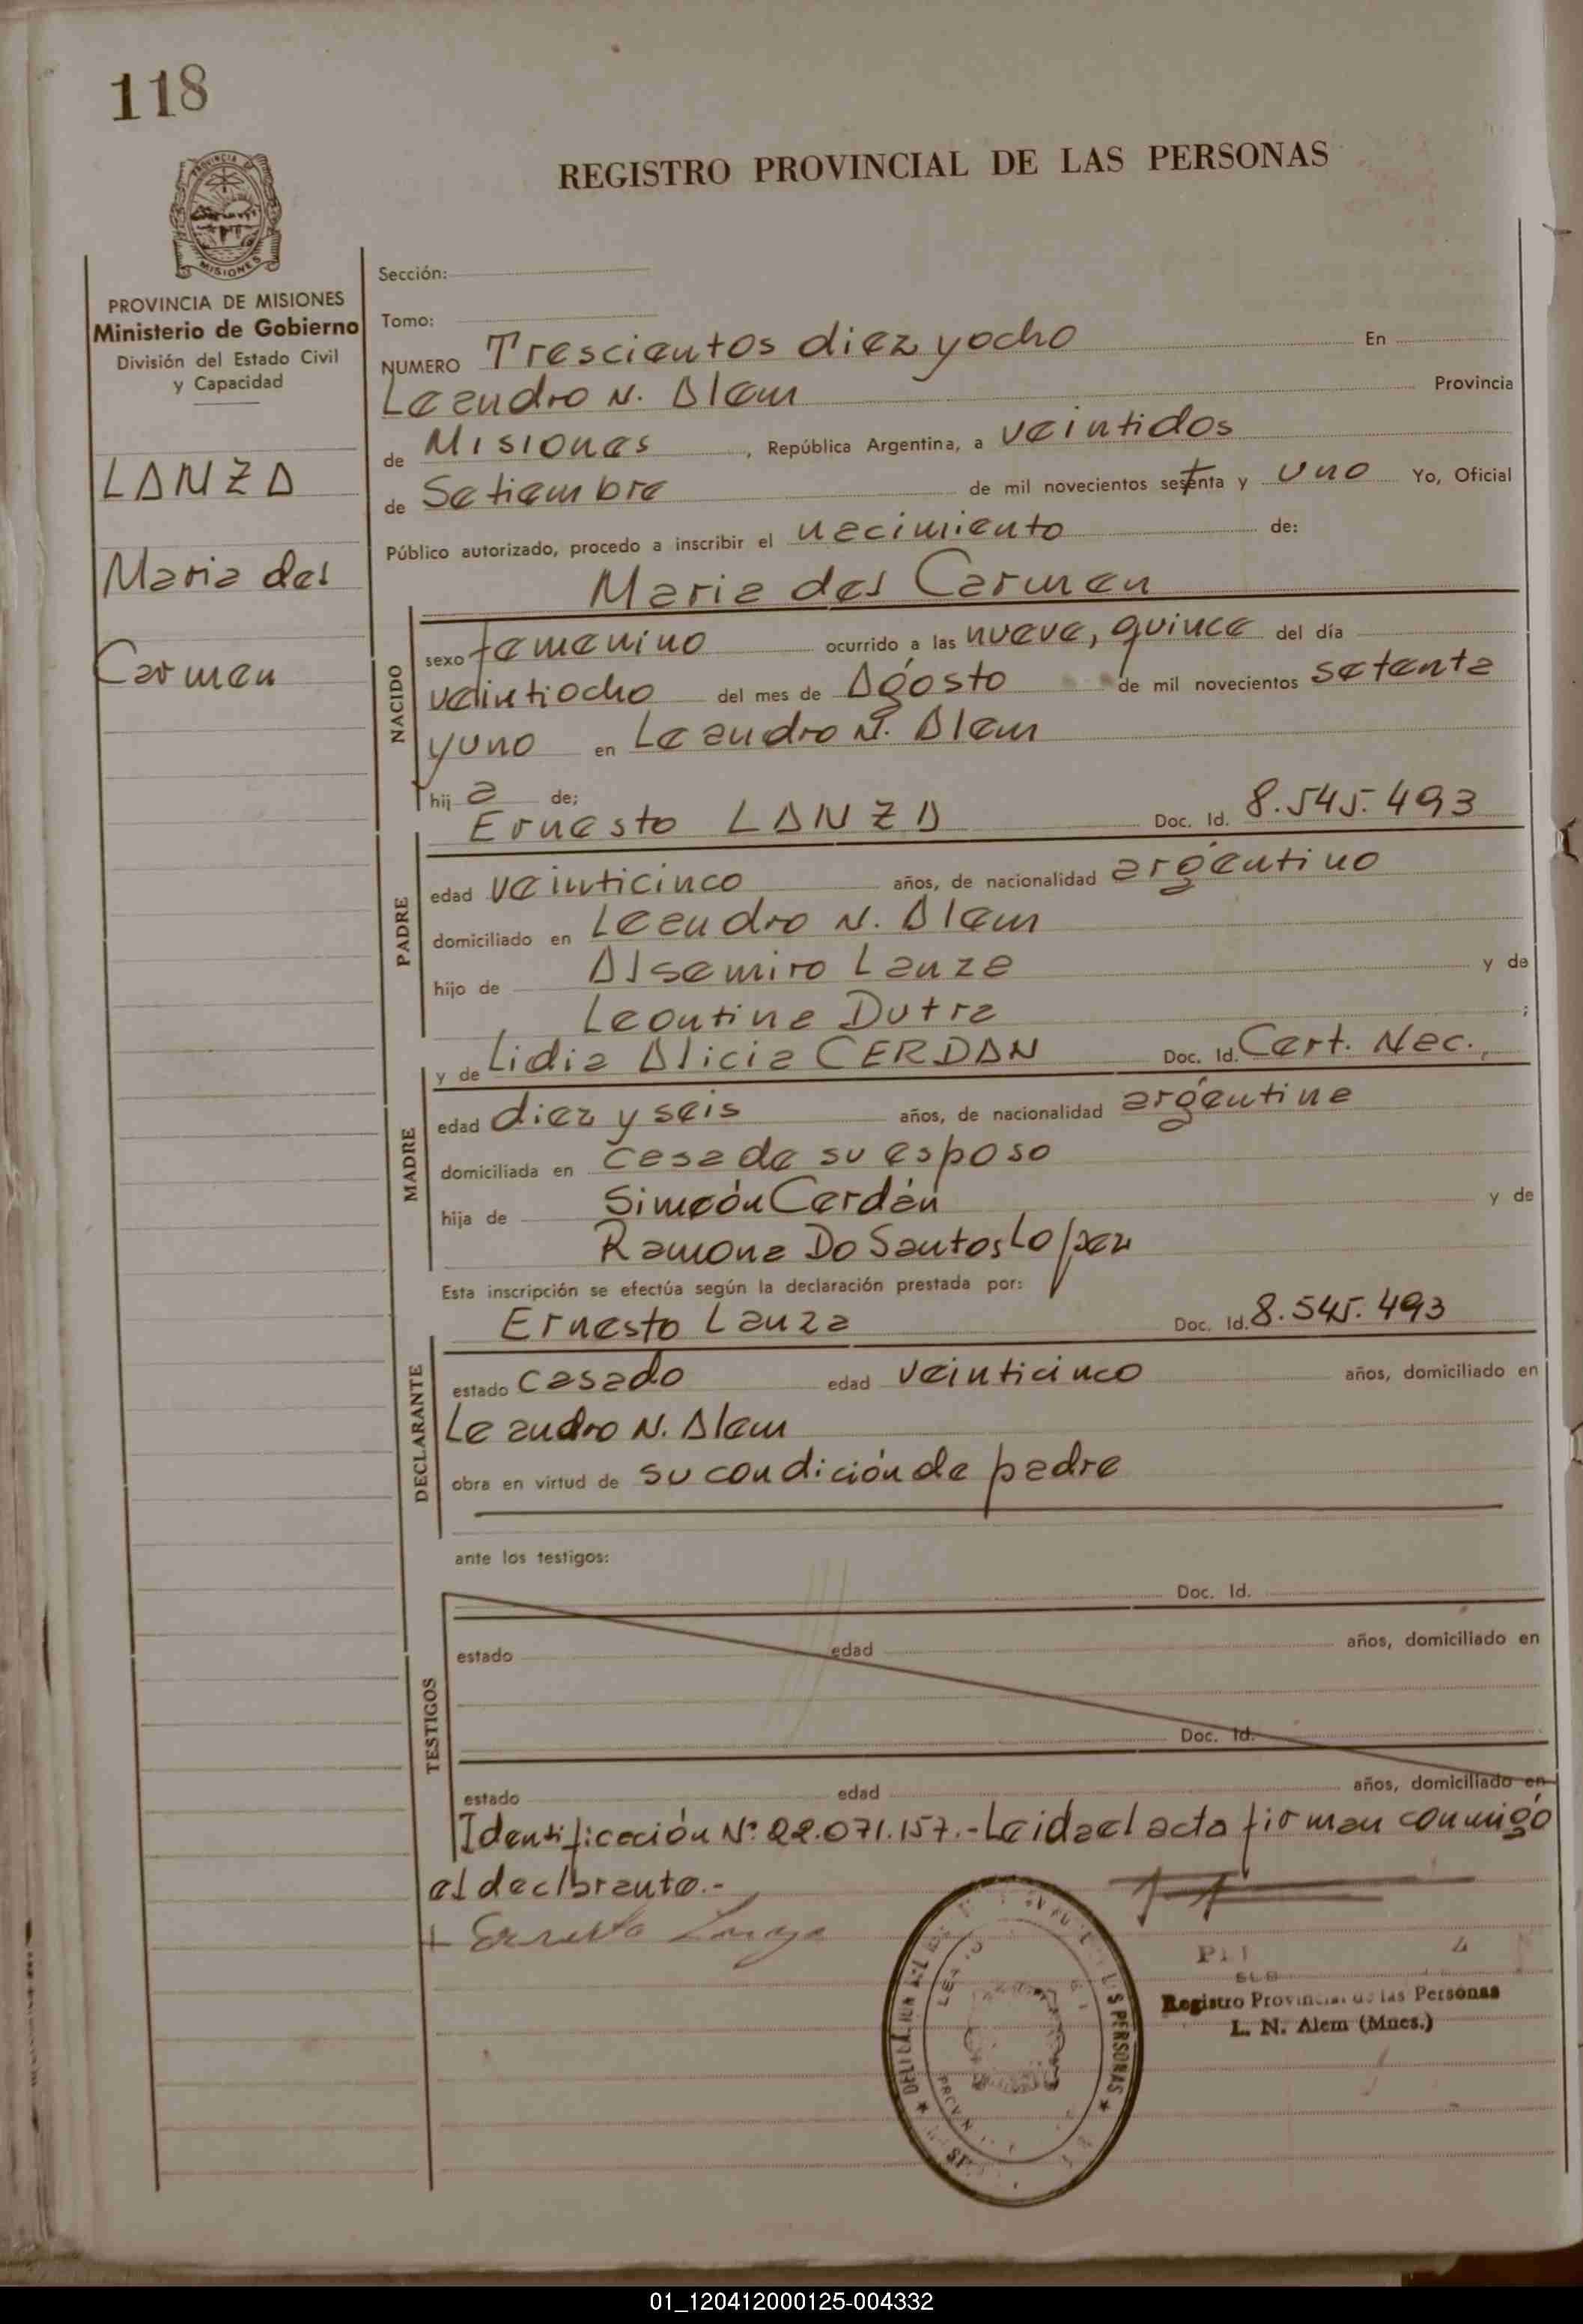 118
REGISTRO PROVINCIAL DE LAS PERSONAS
PROVINCIA DE MISIONES
Ministerio de Gobierno
División del Estado Civil
y Capacidad
LANZA
Maria del
Carmen
Sección:
Tomo:
NUMERO Trescientos diez y ocho En
Leandro N. Alem Provincia
de Misiones, República Argentina, a veintidos
de Setiembre de mil novecientos setenta y uno Yo, Oficial
Público autorizado, procedo a inscribir el nacimiento de:
Maria del Carmen
NACIDO
sexo femenino ocurrido a las nueve, quince del día
veintiocho del mes de Agosto de mil novecientos setenta
y uno en Leandro N. Alem
hij a de:
Ernesto LANZA Doc. Id. 8.545.493
PADRE
edad veinticinco años, de nacionalidad argentino
domiciliado en Leandro N. Alem
hijo de Alsemiro Lanza y de
Leontina Dutra ;
y de Lidia Alicia CERDAN Doc. Id. Cert. Nac.
MADRE
edad diez y seis años, de nacionalidad argentina
domiciliada en casa de su esposo
hija de Simeón Cerdán y de
Ramona Do Santos Lopez
Esta inscripción se efectúa según la declaración prestada por:
Ernesto Lanza Doc. Id. 8.545.493
DECLARANTE
estado casado edad veinticinco años, domiciliado en
Leandro N. Alem
obra en virtud de su condición de padre
ante los testigos:
Doc. Id.
TESTIGOS
estado edad años, domiciliado en
Doc. Id.
estado edad años, domiciliado en
Identificación Nº 22.071.157.- Leida el acta firman conmigo
el declarante.-
+ Ernesto Lanza
DELEGACION PERSONAS
Registro Provincial de las Personas
L. N. Alem (Mnes.)
01_120412000125-004332